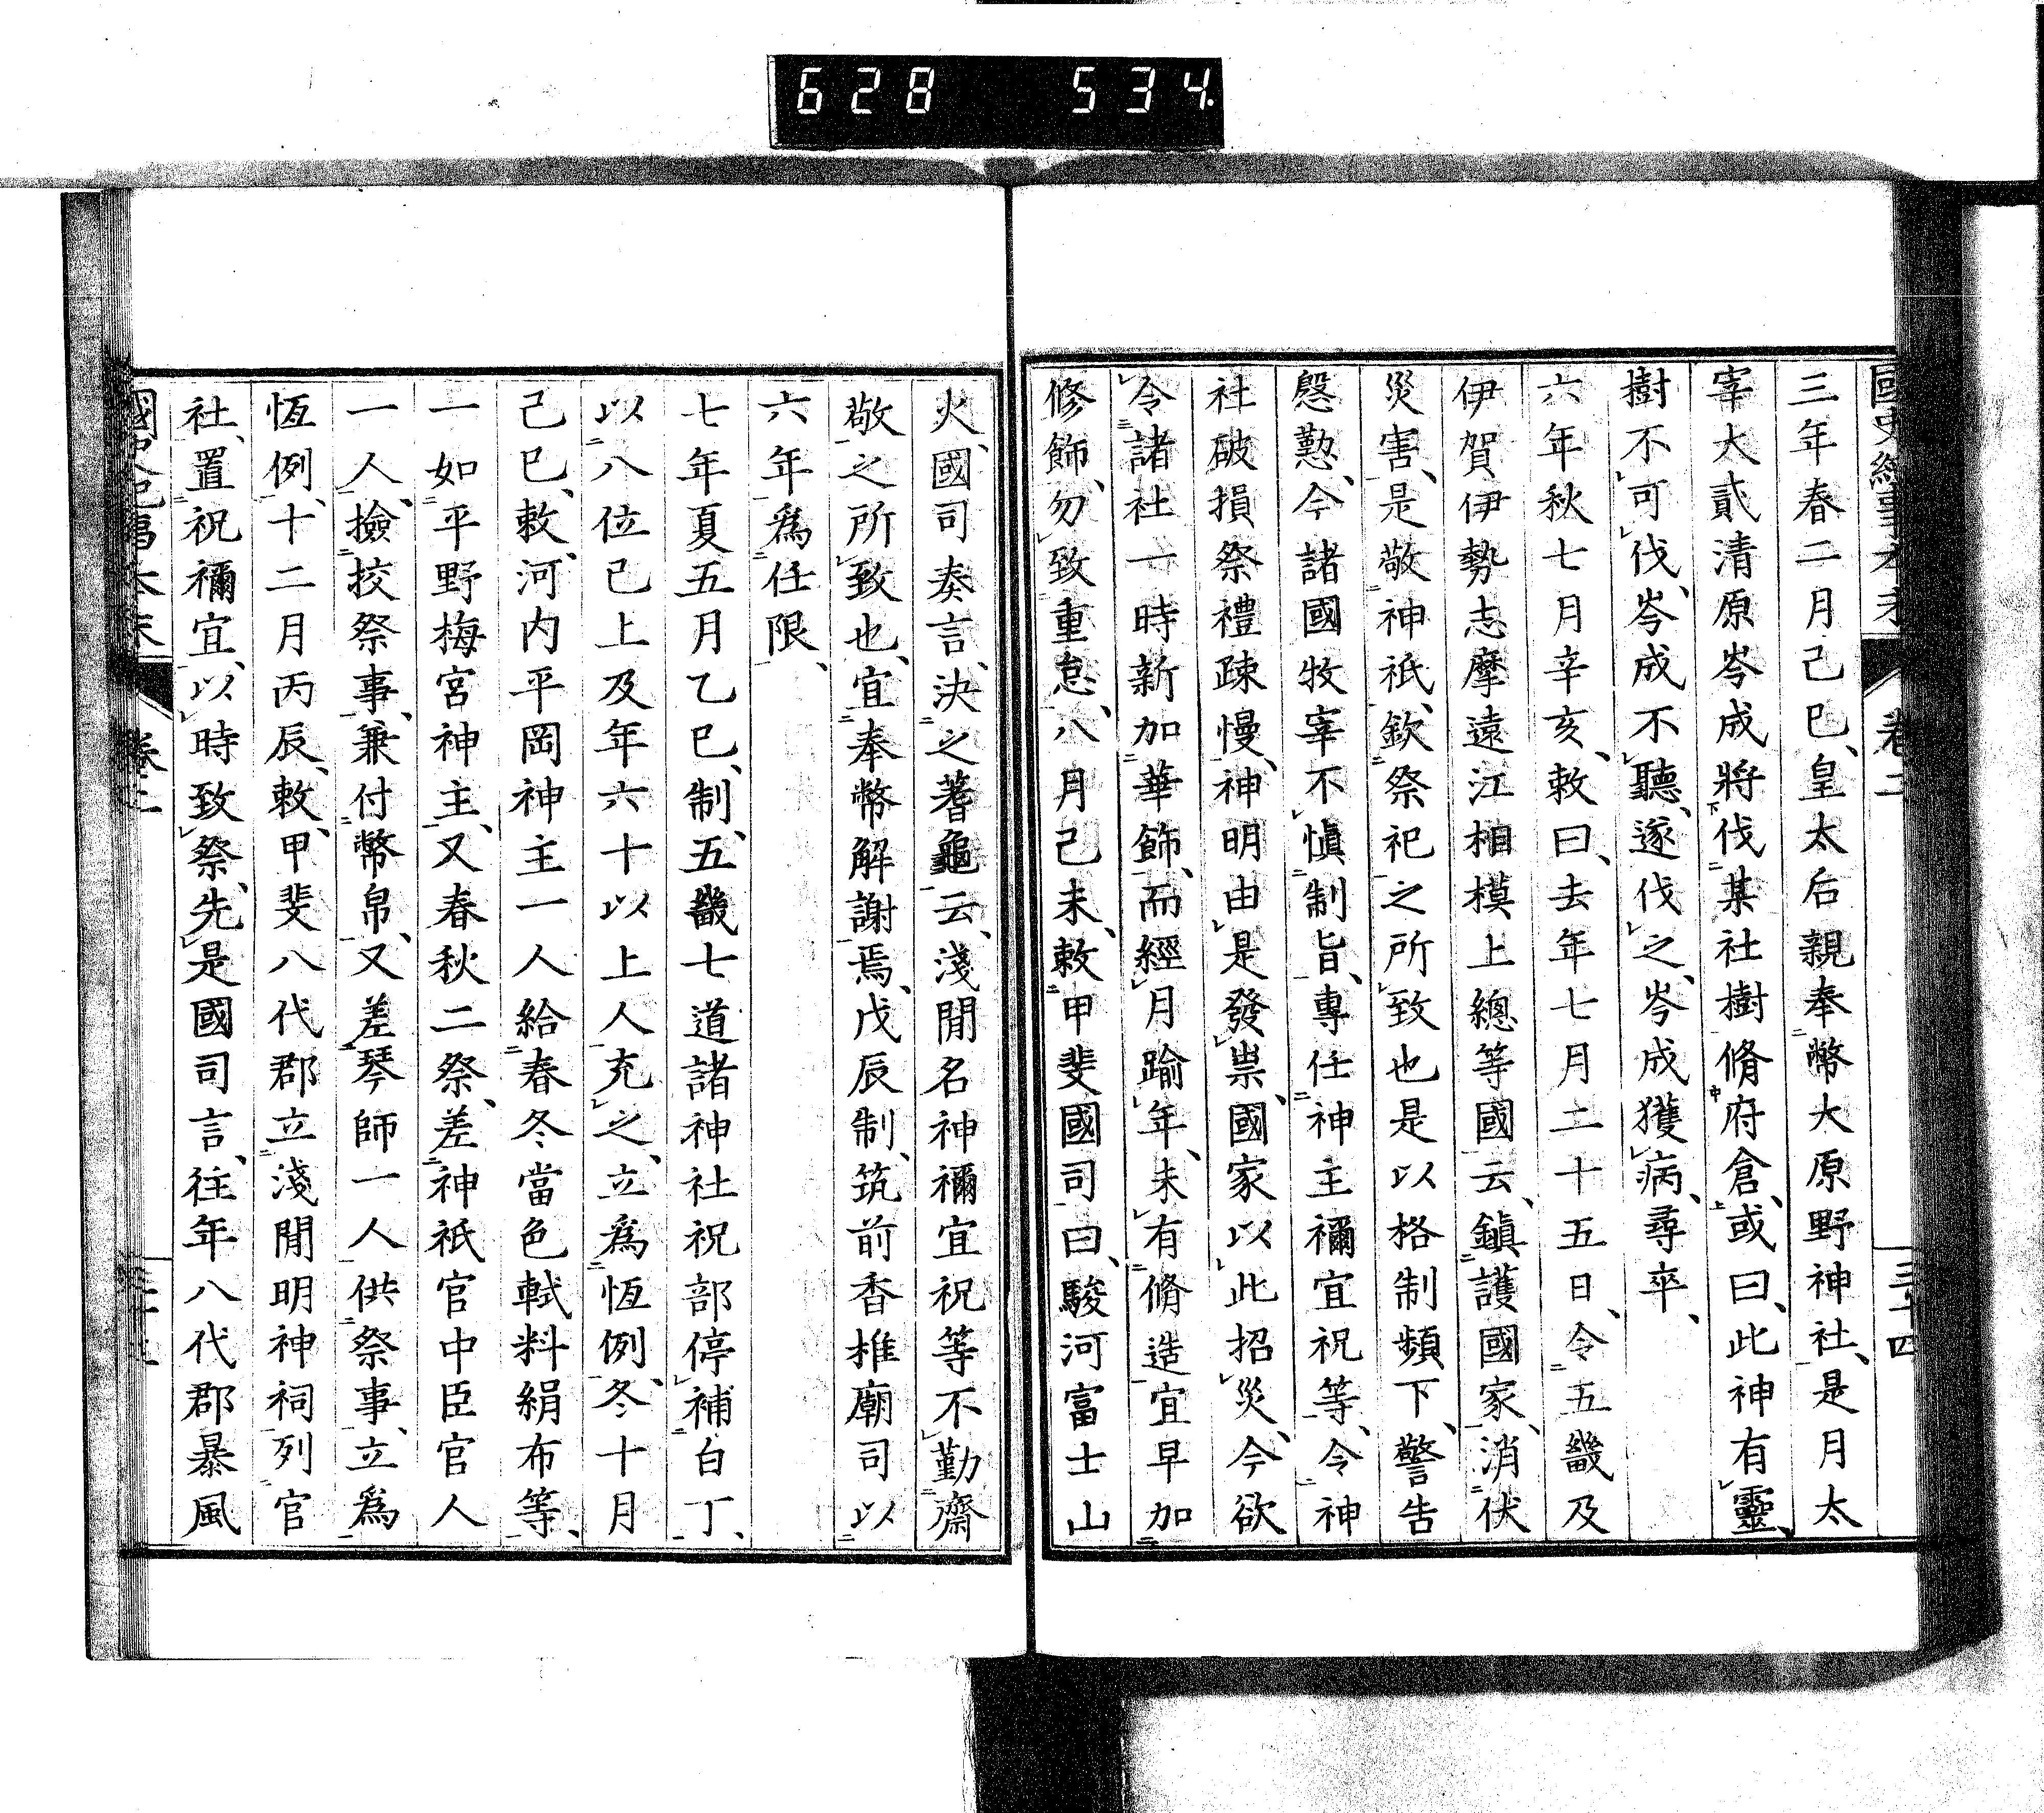 628 534.
三年春二月己巳、皇太后親奉幣大原野神社、是月太
宰大貳清原岑成將伐某社樹脩府倉、或曰、此神有靈、
樹不可伐、岑成不聽、遂伐之、岑成獲病、尋卒、
六年秋七月辛亥、敕曰、去年七月二十五日、令五畿及
伊賀伊勢志摩遠江相模上總等國云、鎮護國家、消伏
災害、是敬神祇、欽祭祀之所致也是以格制頻下、警告
慇懃、今諸國牧宰不愼制旨、專任神主禰宜祝等、令神
社破損祭禮疎慢、神明由是發祟、國家以此招災、今欲
令諸社一時新加華飾、而經月踰年、未有脩造宜早加
修飾、勿致重怠、八月己未、敕甲斐國司曰、駿河富士山
火、國司奏言、決之蓍龜云、淺間名神禰宜祝等不勤齋
敬之所致也、宜奉幣解謝焉、戊辰制、筑前香椎廟司以
六年爲任限、
七年夏五月乙巳、制、五畿七道諸神社祝部停補白丁、
以八位已上及年六十以上人充之、立爲恆例、冬十月
己巳、敕、河内平岡神主一人給春冬當色軾料絹布等、
一如平野梅宮神主、又春秋二祭、差神祇官中臣官人
一人、撿挍祭事、兼付幣帛、又差琴師一人供祭事、立爲
恆例、十二月丙辰、敕、甲斐八代郡立淺間明神祠列官
社、置祝禰宜、以時致祭、先是國司言、往年八代郡暴風